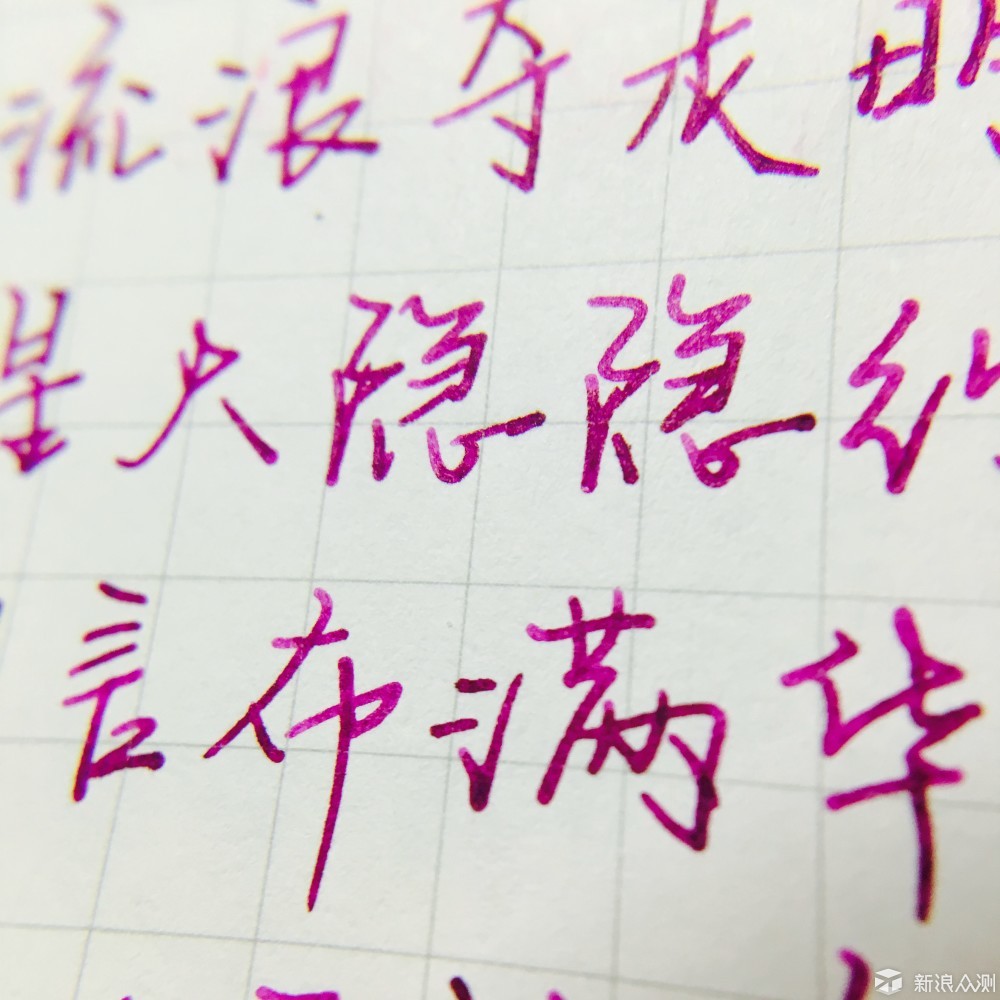 流浪寻友明
星火隐隐约
言布满华
新浪众测